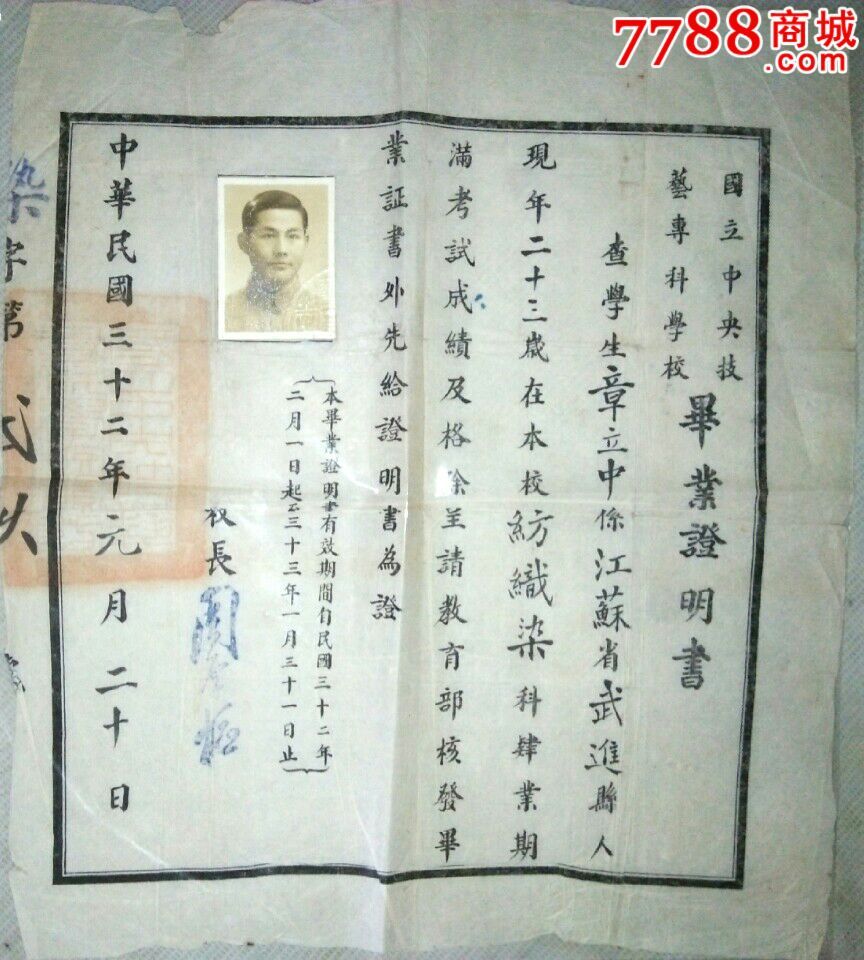 7788商城
.com
國立中央技
藝專科學校
畢業證明書
查學生章立中係江蘇省武進縣人
現年二十三歲在本校紡織染科肄業期
滿考試成績及格除呈請教育部核發畢
業証書外先給證明書為證
本畢業證明書有效期間自民國三十二年
二月一日起至三十三年一月三十一日止
校長
中華民國三十二年元月二十日
染字第